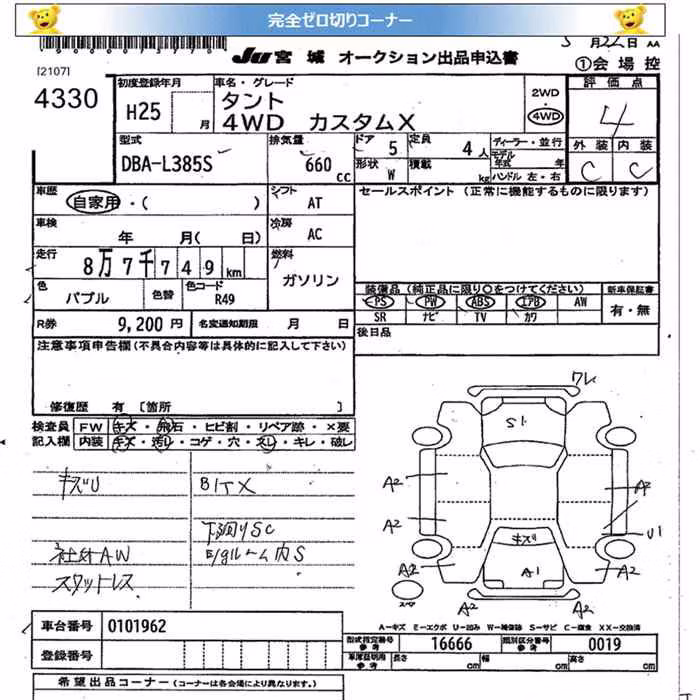 完全ゼロ切りコーナー
JU 宮城 オークション出品申込書
月22日 AA
[2107]
①会場控
4330
初度登録年月
H25 月
車名・グレード
タント
4WD カスタムX
2WD
4WD
評価点
4
外装 内装
C C
型式
DBA-L385S
排気量
660 cc
ドア 5
定員 4人
形状 W
積載 kg
ディーラー・並行
モデル年式 年
ハンドル 左・右
車歴
自家用・( )
シフト AT
セールスポイント (正常に機能するものに限ります)
車検
年 月( 日)
冷房 AC
走行
8万7千749km
燃料
ガソリン
色
パプル
色替
色コード
R49
装備品(純正品に限り○をつけてください)
新車保証書
PS PW ABS エアB AW
有・無
SR ナビ TV カワ
R券 9,200円
名変通知期限 月 日
後日品
注意事項申告欄(不具合内容等は具体的に記入して下さい)
修復歴 有 [箇所 ]
検査員 FW キズ・飛石・ヒビ割・リペア跡・×要
記入欄 内装 キズ・汚レ・コゲ・穴・スレ・キレ・破レ
キズU
BITX
下廻りSC
社外AW
E/gルーム内S
スタットレス
ワレ
S1
A2
A2
A2
A2
キズ
U1
A1
A2
A2
A2
A2
スペア
A-キズ E-エクボ U-凹み W-補修跡 S-サビ C-腐食 XX-交換済
車台番号 0101962
型式指定番号 参考 16666
類別区分番号 参考 0019
登録番号
車庫証明用 参考 長さ cm 幅 cm 高さ cm
希望出品コーナー(コーナーは各会場により異なります。)